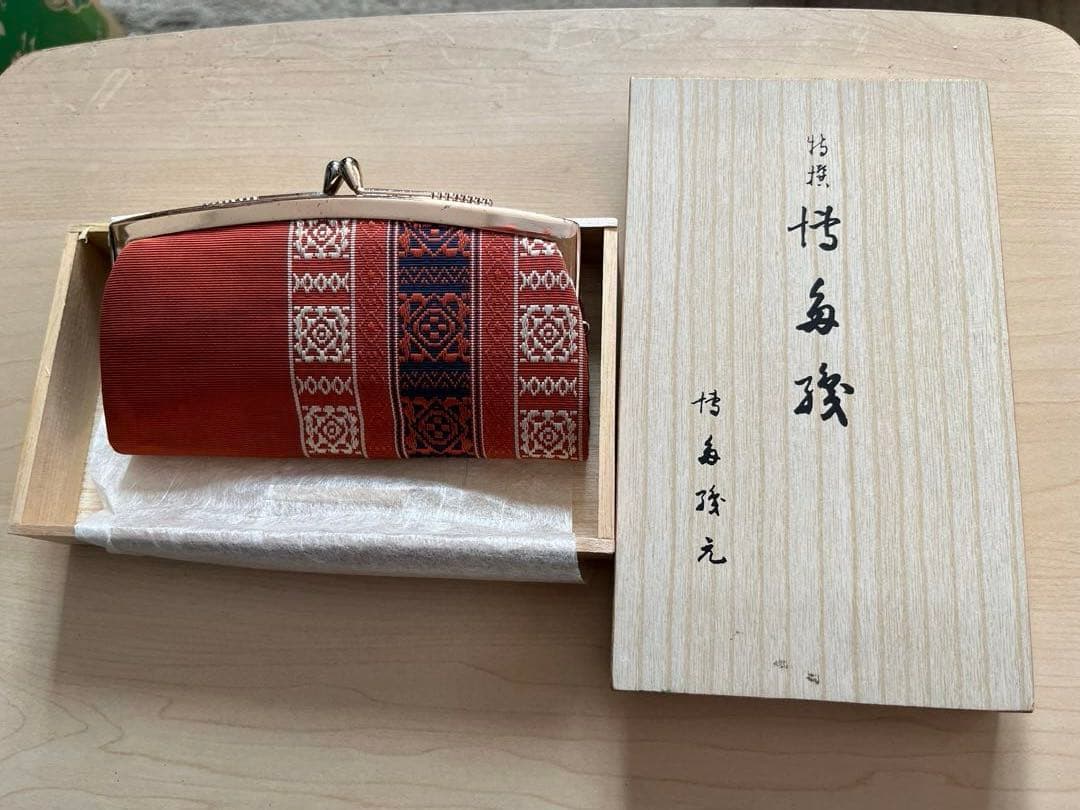 特撰
博多織
博多織元